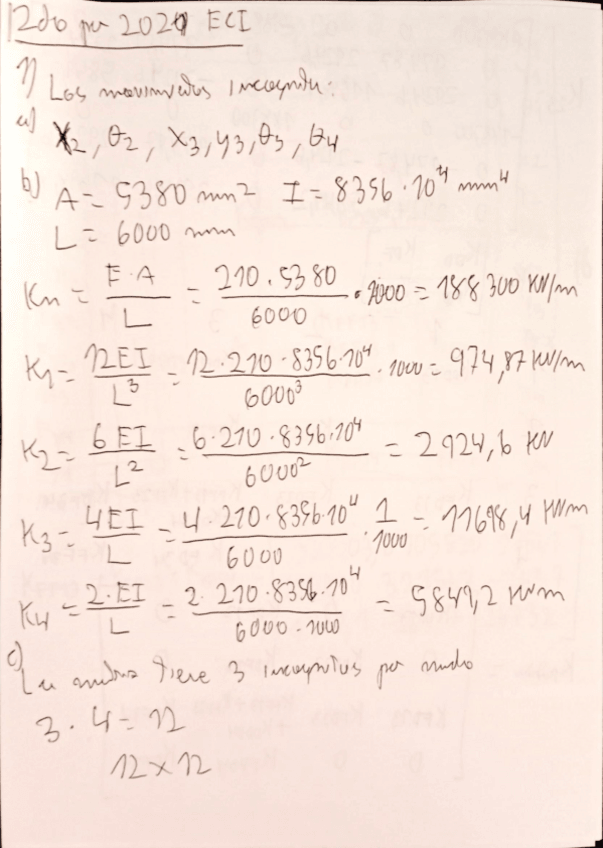 2do par 2020 ECI
1) Los movimientos incognita:
a) X2, θ2, X3, y3, θ3, θ4
b) A = 5380 mm² I = 8356·10⁴ mm⁴
L = 6000 mm
Kn = E·A / L = 210·5380 / 6000 · 1000 = 188300 KN/m
K1 = 12EI / L³ = 12·210·8356·10⁴ / 6000³ · 1000 = 974,87 KN/m
K2 = 6EI / L² = 6·210·8356·10⁴ / 6000² = 2924,6 KN
K3 = 4EI / L = 4·210·8356·10⁴ / 6000 · 1/1000 = 11698,4 KNm
K4 = 2·EI / L = 2·210·8356·10⁴ / 6000·1000 = 5849,2 KNm
c) La matriz tiene 3 incognitas por nudo
3·4 = 12
12x12